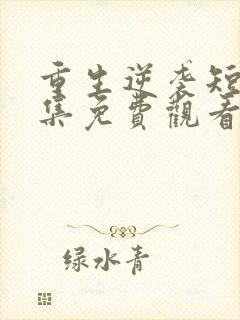 重生逆袭短
集免費觀看
绿水青